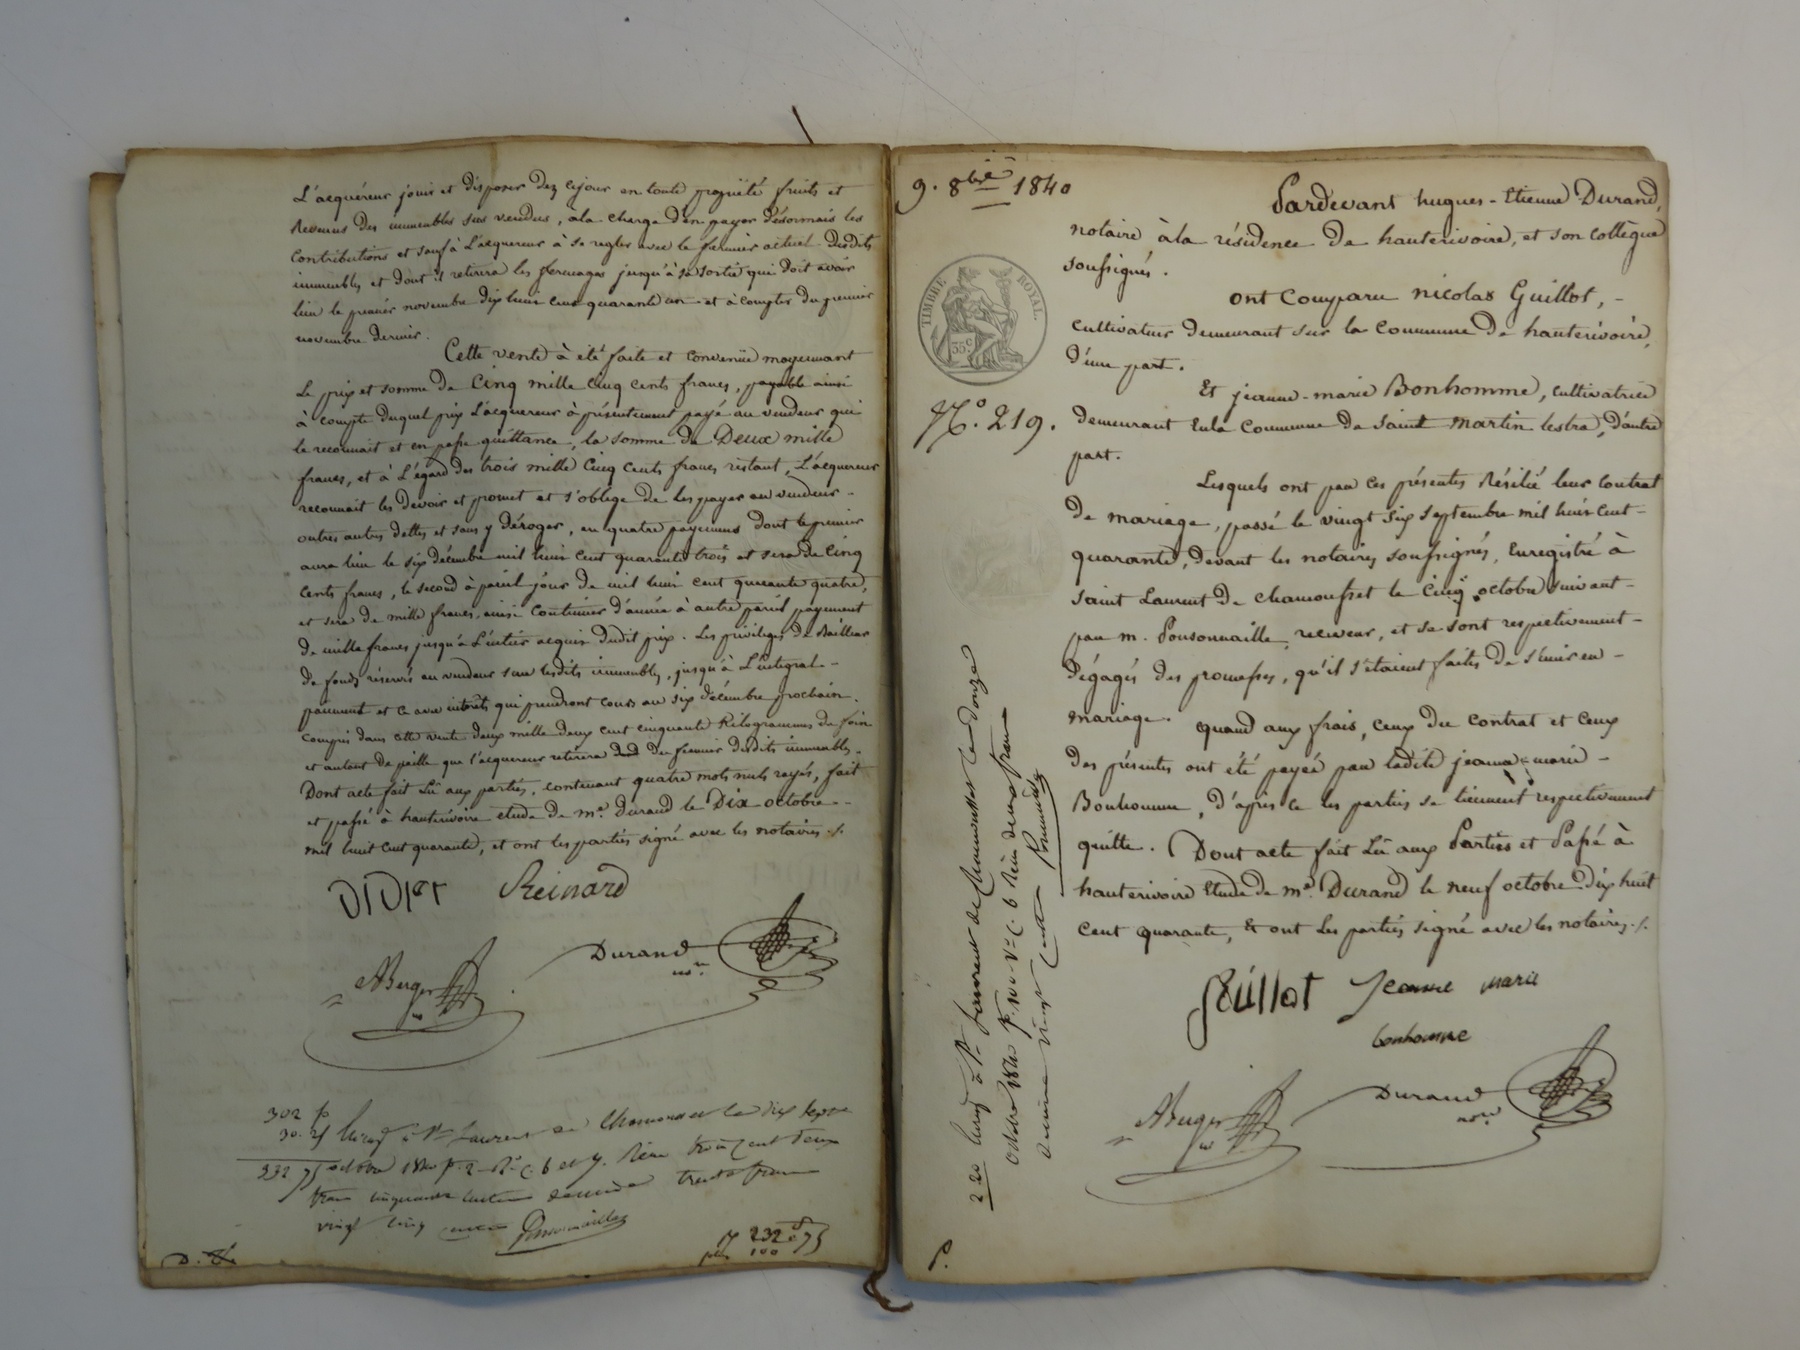 L'acquéreur jouir et disposer dez cejour en toute propriété fruits et
Revenus des immeubles sus vendus, àla charge d'en payer désormais les
contributions et sauf à L'acquereur à se regler avec le fermier actuel desdits
immeubles et dont il retirera les fermages jusqu'à sa sortie qui doit avoir
lieu le premier novembre dix huit cent quarante un et à compter du premier
novembre dernier.
Cette vente à été faite et convenüe moyennant
Le prix et somme de Cinq mille cinq cents francs, payable ainsi
à compte duquel prix L'acquereur à présentement payé au vendeur qui
le reconnait et en passe quittance, la somme de Deux mille
francs, et à L'égard des trois mille cinq cents francs restant, L'acquereur
reconnait les devoir et promet et s'oblige de les payer au vendeur -
outres autres dettes et sans y déroger, en quatre payemens dont le premier
aura lieu le six décembre mil huit cent quarante trois et sera de Cinq
cents francs, le second à pareil jour de mil huit cent quarante quatre,
et sera de mille francs, ainsi continuer d'année à autre pareil payement
de mille francs jusqu'à L'entier acquis dudit prix. Les privileges de Bailleur
de fonds réservés au vendeur sur lesdits immeubles, jusqu'à L'integral -
paiement et ce avec intérêts qui prendront cours au six décembre prochain.
Compris dans cette vente deux mille deux cent cinquante Kilogrammes de foin
et autant de paille que l'acquereur retirera du fermier desdits immeubles -
Dont acte fait Lû aux parties, contenant quatre mots nuls rayés, fait
et passé à hauterivoire etude de me. Durand le Dix octobre -
mil huit cent quarante, et ont les parties signé avec les notaires ./.
DIDIER Reinard
ABerger
Durand
nore
302 f
30. 25 Enreg à St Laurent de Chamousset le dix sept
332 75 octobre 1840 f. 2 Ro c. 6 et 7. Reçu trois cent deux
francs cinquante centimes decime trente francs
vingt cinq centimes Ponsonnaille
232 75
100
9. 8bre 1840
Pardevant hugues-Etienne Durand,
notaire àla résidence de hauterivoire, et son collègue
soussignés.
TIMBRE ROYAL.
35 c
ont Comparu nicolas Guillot, -
cultivateur demeurant sur la Commune de hauterivoire,
d'une part.
Et jeanne-marie Bonhomme, cultivatrice
No. 219.
demeurant Enla Commune de Saint martin lestra, d'autre
part.
Lesquels ont par ces présentes Résilié leur Contrat
de mariage, passé le vingt six septembre mil huit cent -
quarante, devant les notaires soussignés, Enregistré à
saint Laurent de chamousset le Cinq octobre suivant -
par m. Ponsonnaille, receveur, et se sont respectivement -
dégagés des promesses, qu'il s'étaient faites de s'unir en -
mariage.
quand aux frais, ceux du contrat et Ceux
des présentes ont été payés par ladite jeanne-marie -
Bonhomme, d'après ce les parties se tiennent respectivement
quitte. Dont acte fait Lû aux Parties et Passé à
hauterivoire Etude de me. Durand le neuf octobre dix huit
cent quarante, Et ont les parties signé avec les notaires ./.
guillot Jeanne marie
bonhomme
ABerger
Durand
nore
2 20 Enreg à St Laurent de Chamousset le douze
octobre 1840 fo. 100 Vo C. 6 Reçu deux francs
decime vingt centimes Ponsonnaille